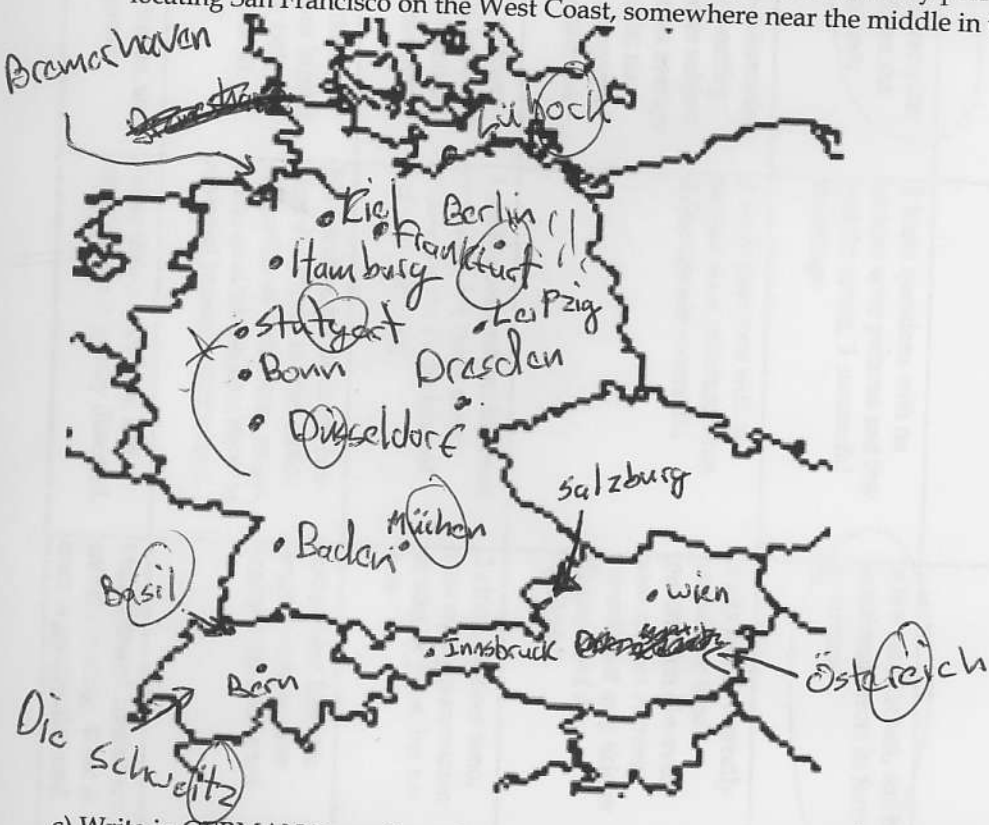 locating San Francisco on the West Coast, somewhere near the middle in
Bremerhaven
Lübock
Kiel
Berlin!!!
Frankfurt
Hamburg
Leipzig
Stutgart
Bonn
Dresden
Düsseldorf
Salzburg
Müchen
Baden
Basil
Wien
Innsbruck
Östereich
Bern
Die Schweitz